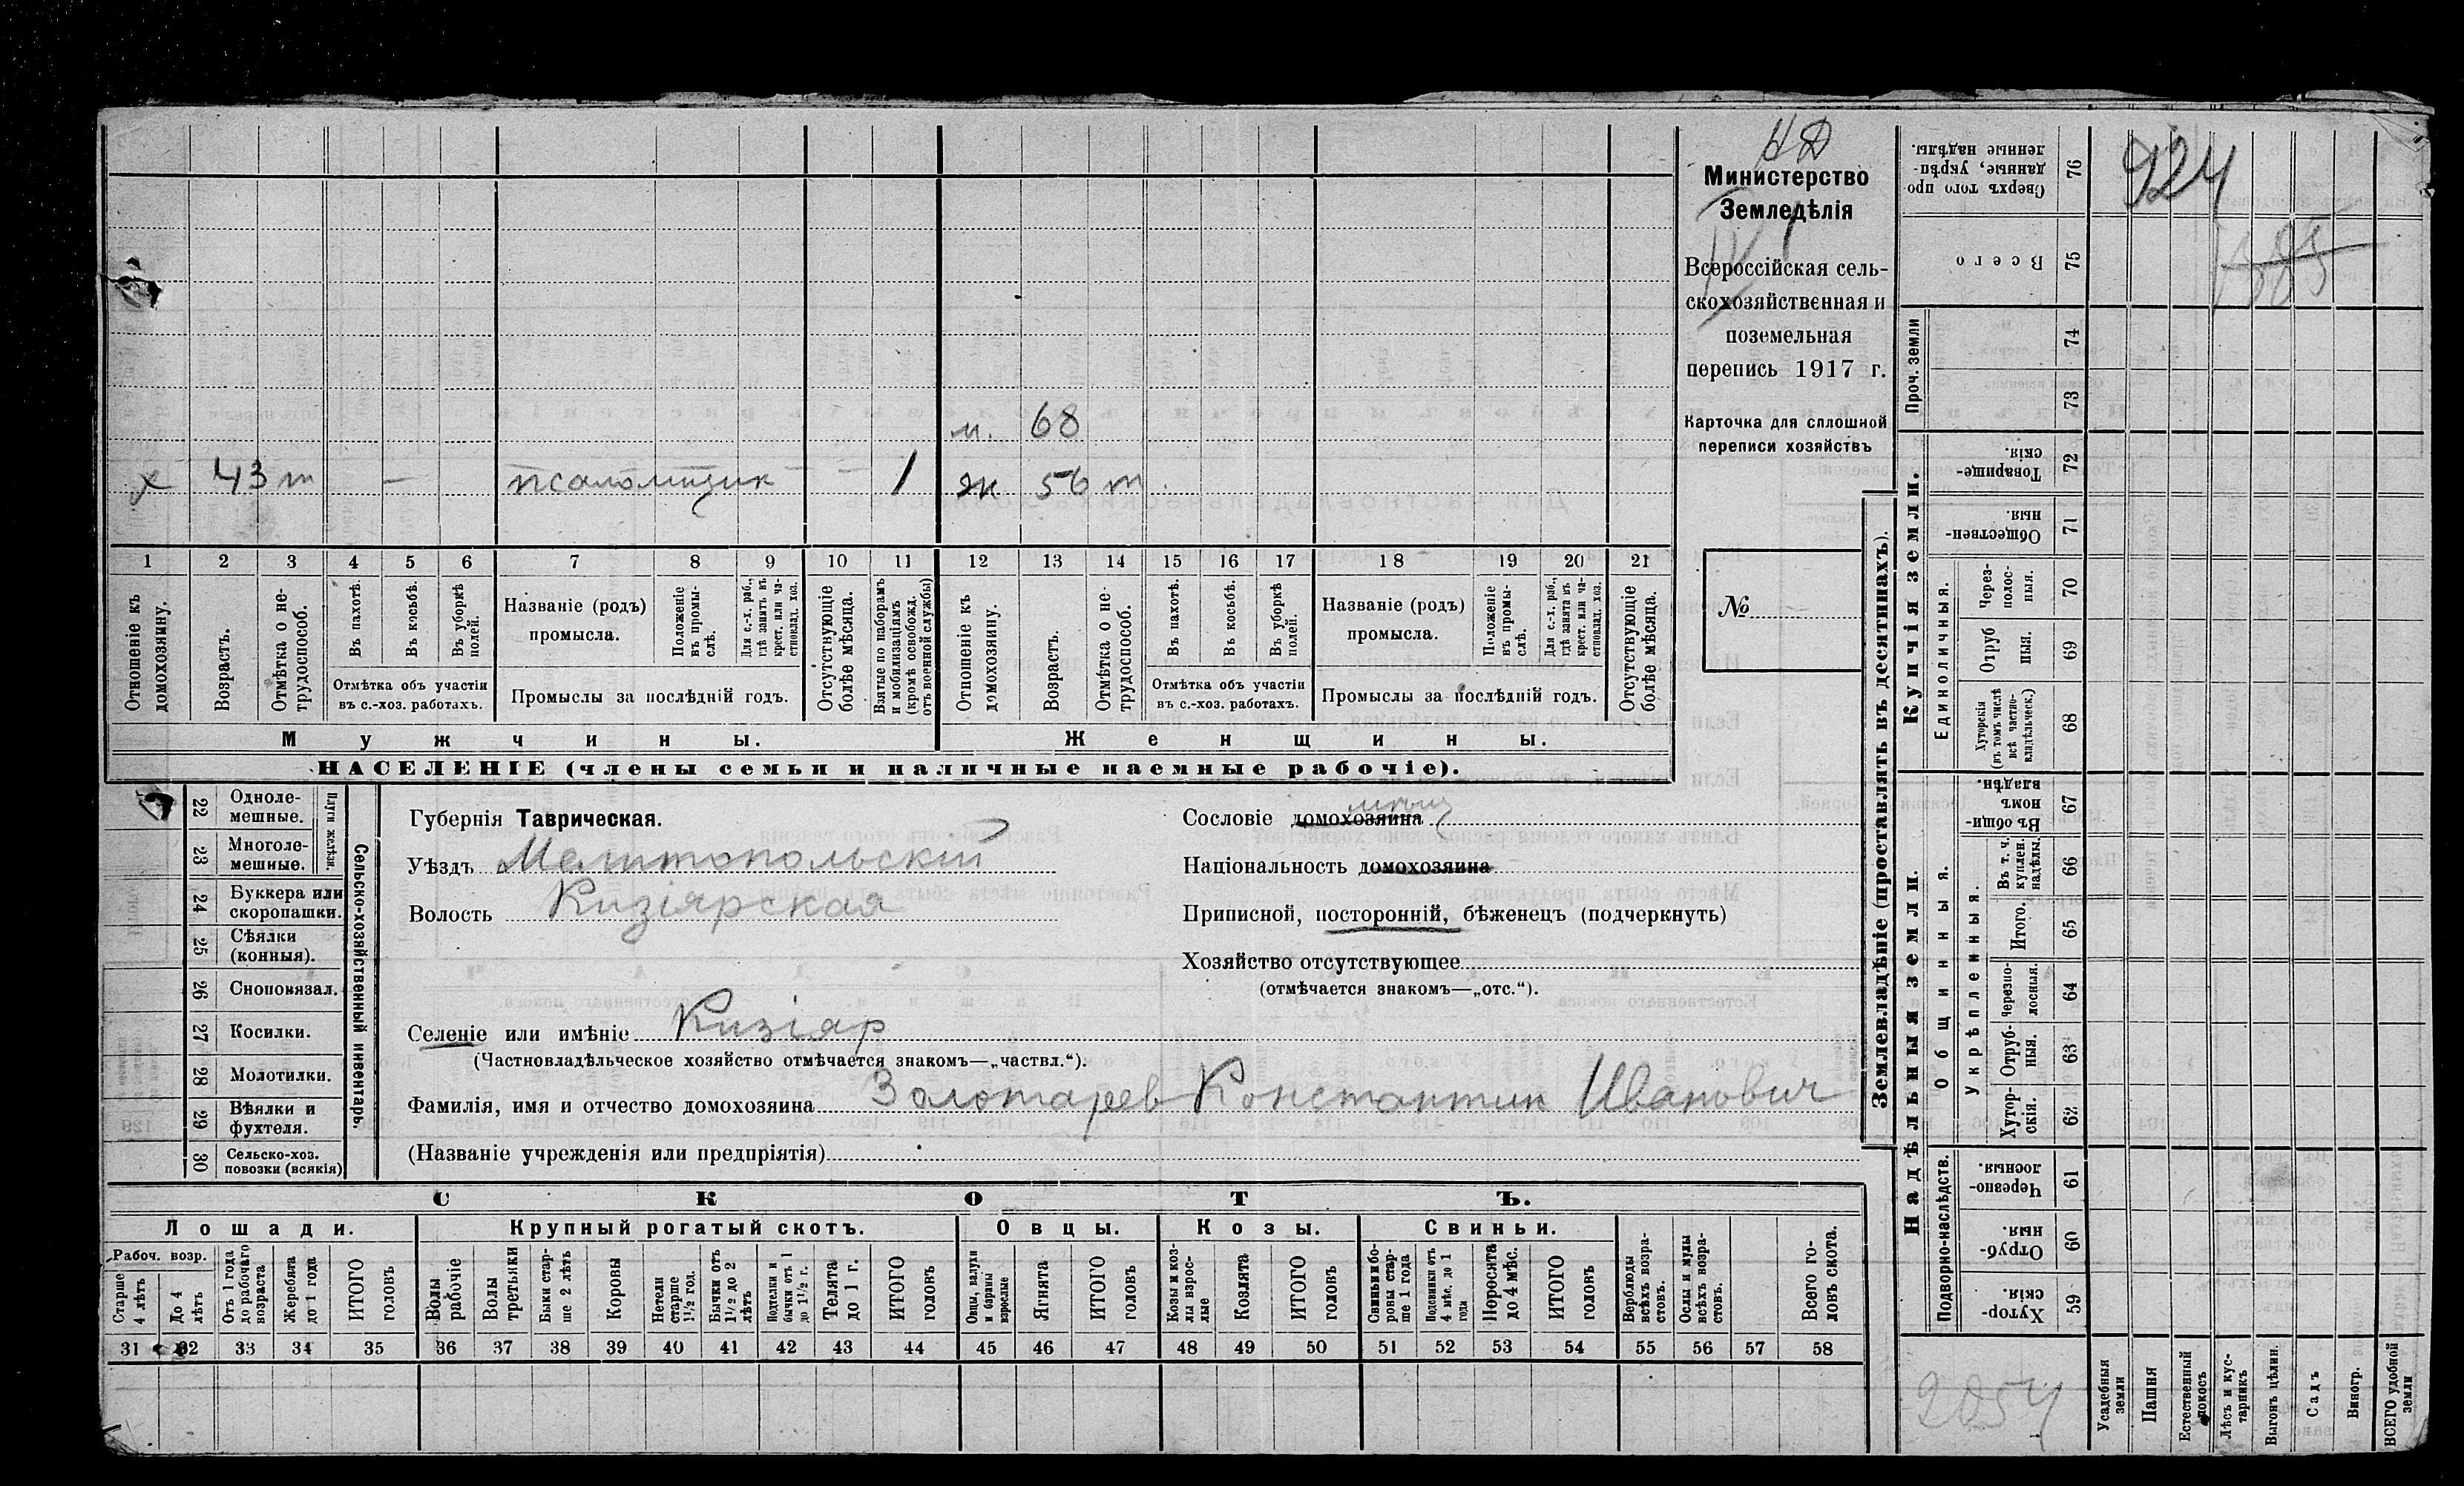 НД
Министерство
Земледѣлія
IV
Всероссійская сель-
скохозяйственная и
поземельная
перепись 1917 г.
Карточка для сплошной
переписи хозяйствъ
№
м. 68
х 43 т — псаломщик — — 1 ж 56 т.
1 2 3 4 5 6 7 8 9 10 11 12 13 14 15 16 17 18 19 20 21
Отношеніе къ домохозяину.
Возрастъ.
Отмѣтка о не-трудоспособ.
Въ пахотѣ.
Въ косьбѣ.
Въ уборкѣ полей.
Отмѣтка объ участіи
въ с.-хоз. работахъ.
Названіе (родъ)
промысла.
Положеніе въ промы-слѣ.
Для с.-х. раб., гдѣ занятъ въ крест. или ча-стновлад. хоз.
Промыслы за послѣдній годъ.
Отсутствующіе болѣе мѣсяца.
Взятые по наборамъ и мобилизаціямъ (кромѣ освобожд. отъ военной службы)
Отношеніе къ домохозяину.
Возрастъ.
Отмѣтка о не-трудоспособ.
Въ пахотѣ.
Въ косьбѣ.
Въ уборкѣ полей.
Отмѣтка объ участіи
въ с.-хоз. работахъ.
Названіе (родъ)
промысла.
Положеніе въ промы-слѣ.
Для с.-х. раб., гдѣ занята въ крест. или ча-стновлад. хоз.
Промыслы за послѣдній годъ.
Отсутствующіе болѣе мѣсяца.
Мужчины.
Женщины.
НАСЕЛЕНІЕ (члены семьи и наличные наемные рабочіе).
22 Однолемешные.
23 Многолемешные.
Плуги желѣзн.
24 Буккера или скоропашки.
25 Сѣялки (конныя).
26 Сноповязал.
27 Косилки.
28 Молотилки.
29 Вѣялки и фухтеля.
30 Сельско-хоз. повозки (всякія)
Сельско-хозяйственный инвентарь.
Губернія Таврическая.
Уѣздъ Мелитопольскій
Волость Кизіярская
Селеніе или имѣніе Кизіяр
(Частновладѣльческое хозяйство отмѣчается знакомъ—„частвл.“).
Фамилія, имя и отчество домохозяина Золотарев Константин Иванович
(Названіе учрежденія или предпріятія)
Сословіе домохозяина
Національность домохозяина
Приписной, посторонній, бѣженецъ (подчеркнуть)
Хозяйство отсутствующее
(отмѣчается знакомъ—„отс.“).
СКОТЪ.
Лошади. Крупный рогатый скотъ. Овцы. Козы. Свиньи.
Рабоч. возр.
Старше 4 лѣтъ
До 4 лѣтъ
Отъ 1 года до рабочаго возраста
Жеребята до 1 года
ИТОГО головъ
Волы рабочіе
Волы третьяки
Быки стар-ше 2 лѣтъ
Коровы
Нетели старше 1½ гол.
Бычки отъ 1½ до 2 лѣтъ
Подтелки и бычки отъ 1 до 1½ г.
Телята до 1 г.
ИТОГО головъ
Овцы, валухи и бараны взрослые
Ягнята
ИТОГО головъ
Козы и коз-лы взрос-лые
Козлята
ИТОГО головъ
Свиньи и бо-ровы стар-ше 1 года
Подсвинки отъ 4 мѣс. до 1 года
Поросята до 4 мѣс.
ИТОГО головъ
Верблюды всѣхъ возра-стовъ.
Ослы и мулы всѣхъ возра-стовъ.
Всего го-ловъ скота.
31 32 33 34 35 36 37 38 39 40 41 42 43 44 45 46 47 48 49 50 51 52 53 54 55 56 57 58
Землевладѣніе (проставлять въ десятинахъ).
Купчія земли.
Надѣльныя земли.
924
385
Сверхъ того про-данные, укрѣп-ленные надѣлы. 76
Всего 75
Проч. земли
74
73
Товарище-скія. 72
Обществен-ныя. 71
Единоличныя.
Через-полос-ныя. 70
Отруб ныя. 69
Хуторскія (въ томъ числѣ всѣ частно-владѣльческ.) 68
Общинныя.
Въ общи-номъ владѣн. 67
Укрѣпленныя.
Въ т. ч. куплен. надѣлы. 66
Итого. 65
Черезпо-лосныя. 64
Отруб-ныя. 63
Хутор-скія. 62
Подворно-наслѣдств.
Черезпо-лосныя. 61
Отруб-ныя. 60
Хутор-скія. 59
2054
Усадебныя земли
Пашня
Естественный покосъ
Лѣсъ и кус-тарникъ
Выгонъ цѣлин.
Садъ
Виногр.
ВСЕГО удобной земли